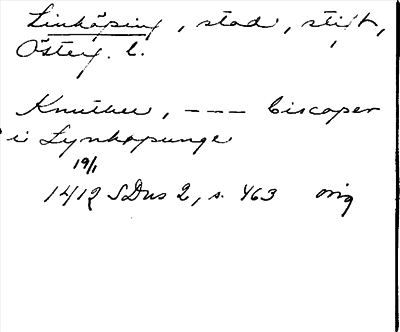 Linköping, stad, stift,
Österg. l.
Knuther, --- biscoper
i Lynkopunge
19/1
1412 SDns 2, s. 463 orig